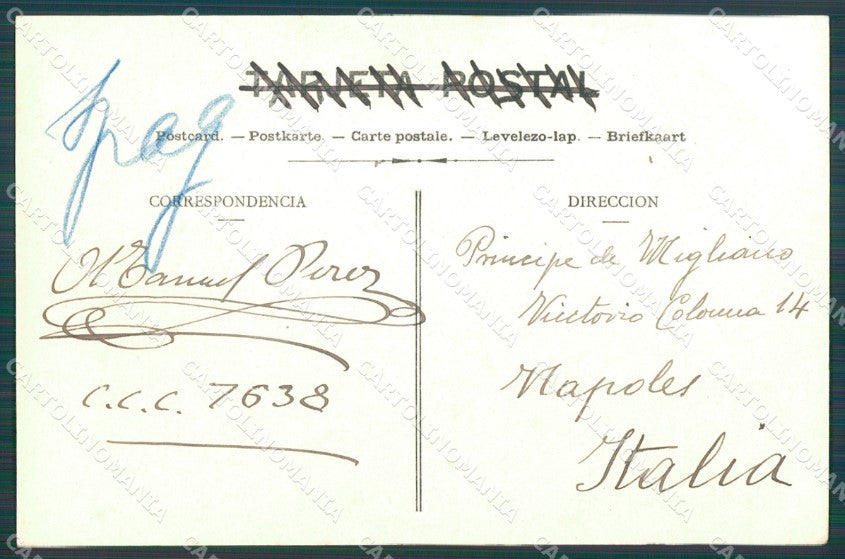 TARJETA POSTAL
Postcard. — Postkarte. — Carte postale. — Levelezo-lap. — Briefkaart
Spag
CORRESPONDENCIA
Manuel Perez
C.C.C. 7638
DIRECCION
Principe de Migliano
Vinctorio Colonna 14
Napoles
Italia
CARTOLINOMANIA